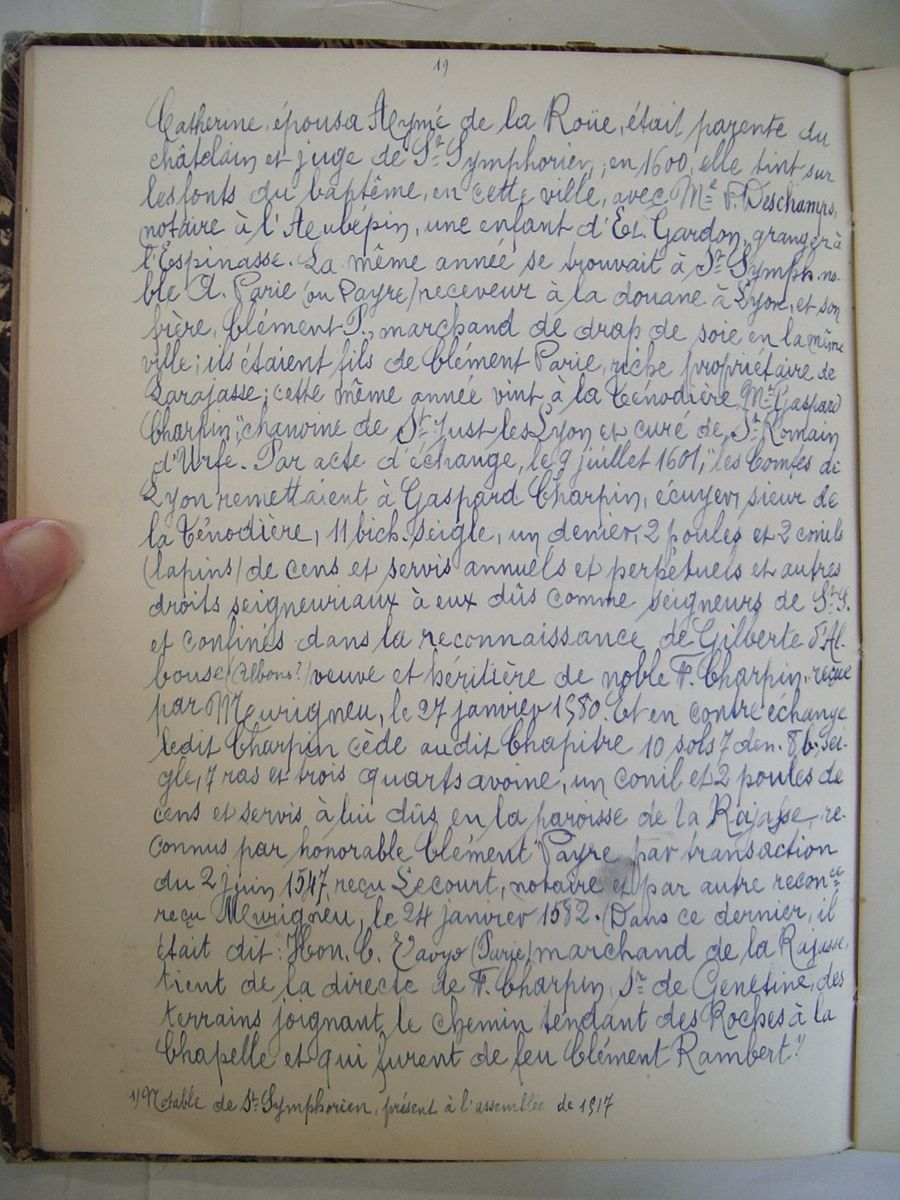 19
Catherine, épousa Aeymé de la Roüe, était parente du
châtelain et juge de St Symphorien, en 1600, elle tint sur
les fonts du baptême, en cette ville, avec Me P. Deschamps,
notaire à l'Aeubépin, une enfant d'Et. Gardon, granger à
l'Espinasse. La même année se trouvait à St Symph. no-
ble A. Parie (ou Payre) receveur à la douane à Lyon, et son
frère, Clément P., marchand de drap de soie en la même
ville; ils étaient fils de Clément Parie, riche propriétaire de
Larajasse; cette même année vint à la Ténodière, "Mre Gaspard
Charpin", chanoine de St Just les Lyon et curé de St Romain
d'Urfé. Par acte d'échange, le 9 juillet 1601, "les Comtes de
Lyon remettaient à Gaspard Charpin, écuyer, sieur de
la Ténodière, 11 bich. seigle, un denier, 2 poules et 2 conils
(lapins) de cens et servis annuels et perpétuels et autres
droits seigneuriaux à eux dûs comme seigneurs de St S.
et confinés dans la reconnaissance de Gilberte d'Al-
bouse (Albons?) veuve et héritière de noble F. Charpin, reçue
par Meurigneu, le 27 janvier 1580. Et en contre échange
ledit Charpin cède audit Chapitre 10 sols 7 den. 8 b. sei-
gle, 7 ras et trois quarts avoine, un conil et 2 poules de
cens et servis à lui dûs en la paroisse de la Rajasse, re-
connus par honorable Clément Payre par transaction
du 2 juin 1547, reçu Lecourt, notaire et par autre reconce
reçu Meurigneu, le 24 janvier 1582. (Dans ce dernier, il
était dit: Hon. C. (Parie) marchand de la Rajasse,
tient de la directe de F. Charpin, Sr de Genetine, des
terrains joignant le chemin tendant des Roches à la
Chapelle et qui furent de feu Clément Rambert." 1)
1) Notable de St Symphorien, présent à l'assemblée de 1517